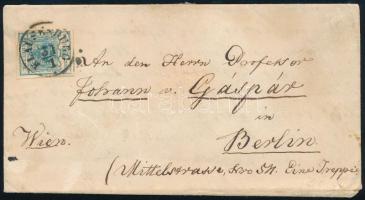 An den Herrn Profesor
Johann v. Gáspár
in
Wien. Berlin.
(Mittelstrasse, Nro 54. Eine Treppe